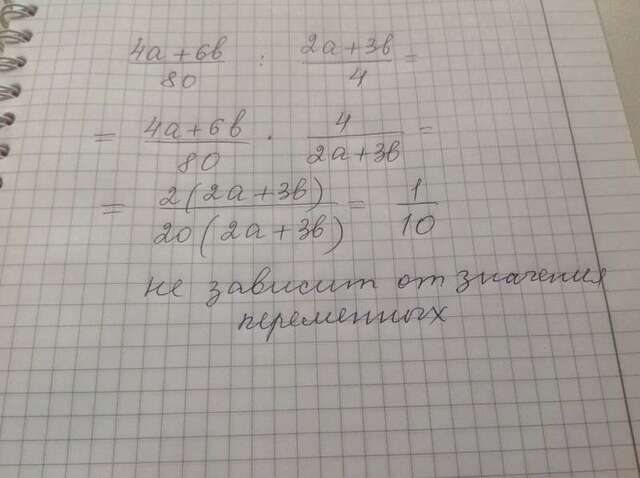 4a+6b/80 : 2a+3b/4 =
= 4a+6b/80 · 4/2a+3b =
= 2(2a+3b)/20(2a+3b) = 1/10
не зависит от значения
переменных